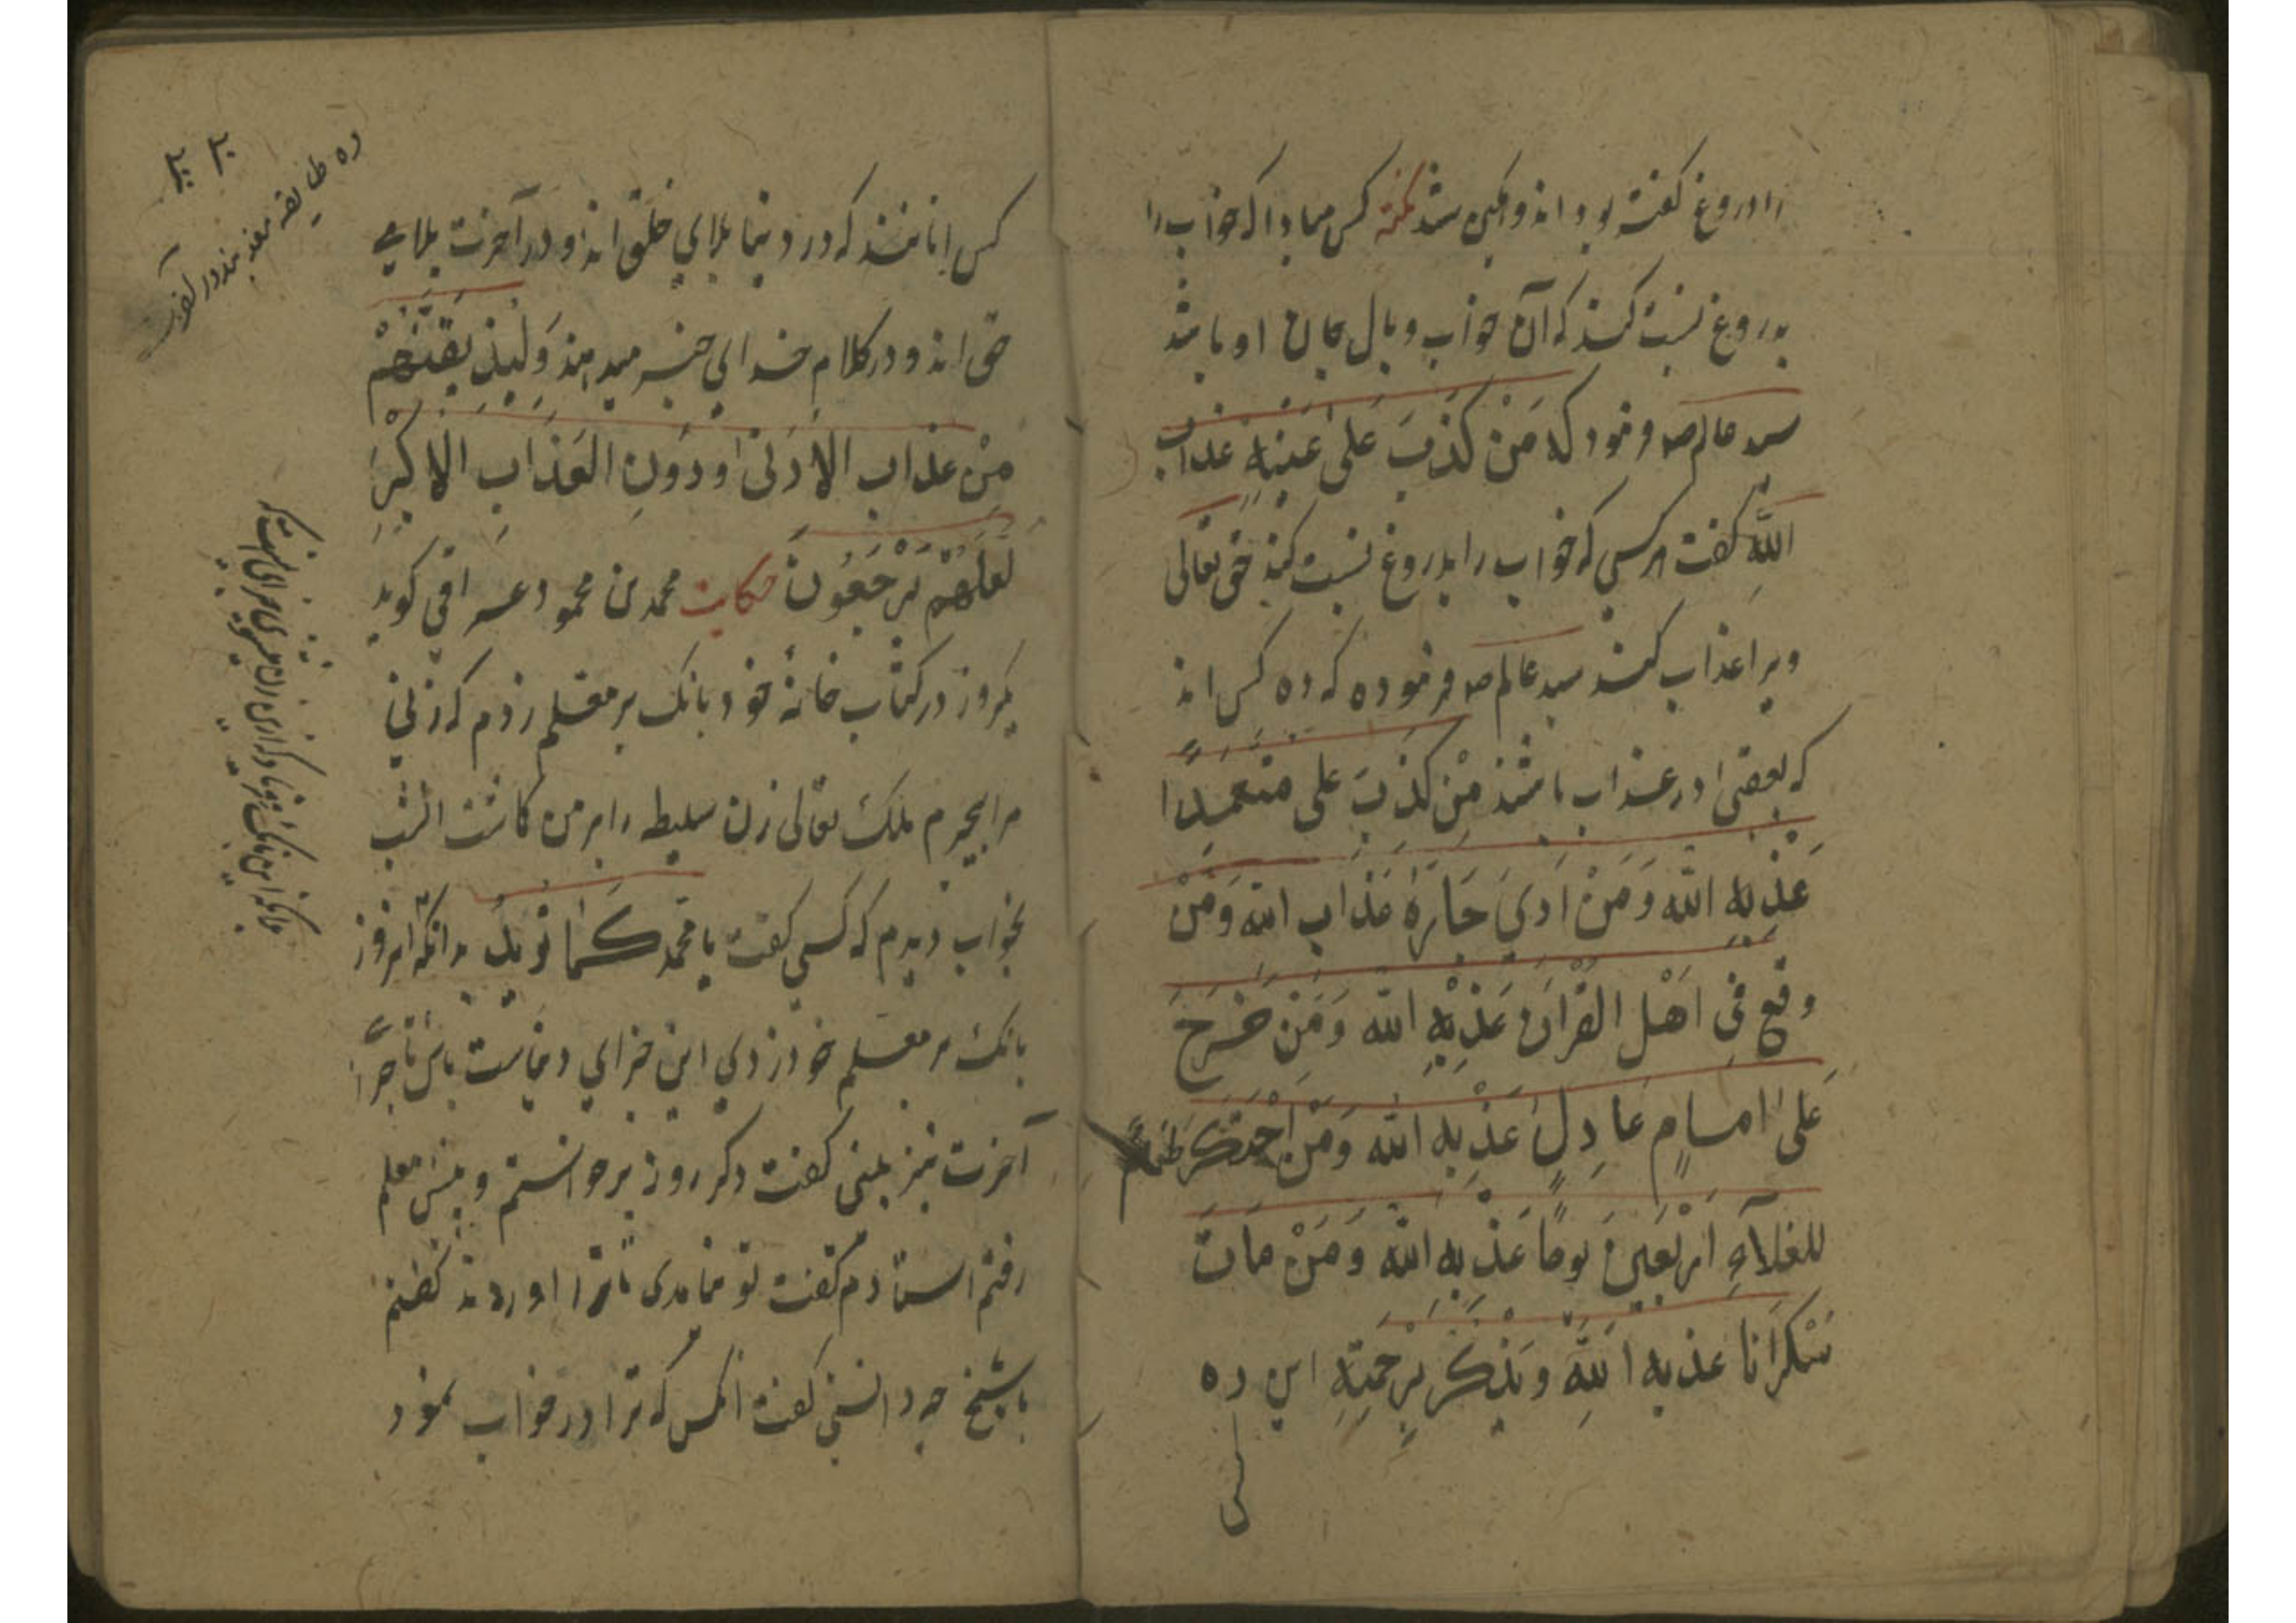 را دروغ گفته بود اندوهگین شد نکته کس مبادا که خواب را
بدروغ نسبت کند که آن خواب وبال جان او باشد
سید عالم صه فرمود که مَنْ کَذَبَ عَلیٰ عَیْنِهِ عذاب
اللهِ گفت هر کسی که خواب را بدروغ نسبت کند حق تعالی
ویرا عذاب کند سید عالم صه فرموده که ده کس اند
که بعقبیٰ در عذاب باشند مَنْ کَذَبَ علی متعمِدًا
عَذَّبَهُ الله وَمَنْ اذیَ جَارَهُ عَذاب الله وَمَنْ
وقع فی اَهْل القُرْآن عَذَّبَهُ الله وَمَنْ خَرَجَ
عَلیٰ امامٍ عَادِلٍ عَذَّبَهُ الله وَمَنْ اِحْتَکَرَ
للغلآءِ اَرْبَعینَ یومًا عَذَّبَهُ الله وَمَنْ مَاتَ
سَکرَانا عذبه اللهَ این ده
کس
کس انانند که در دنیا بلای خلق اند و در آخرت بلای
حق اند و در کلام خدای خبر میدهند وَلَنُذِیقَنَّهُمْ
مِنْ عذاب الاَدْنیٰ دُونَ العَذَاب الاَکْبَرِ
لَعَلَّهُمْ یَرْجِعُونَ حکایت محمد بن محمود عراقی گوید
یکروز در کتاب خانهٔ خود بانک بر معلم زدم که زنی
ملک تعالی زن سلیطه را بر من کاشت آن شب
بخواب دیدم که کسی گفت یا محمد بدانکه امروز
بانک بر معلم خود زدی این جزای دنیاست باش تا جزا
آخرت نیز بینی گفت دکر روز برخواستم و پیش معلم
رفتم استادم گفت تو نیامدی تا ترا اوردند گفتم
یا شیخ چه دانستی گفت آنکس که ترا در خواب نمود
ده طایفه معذبند در آخرت